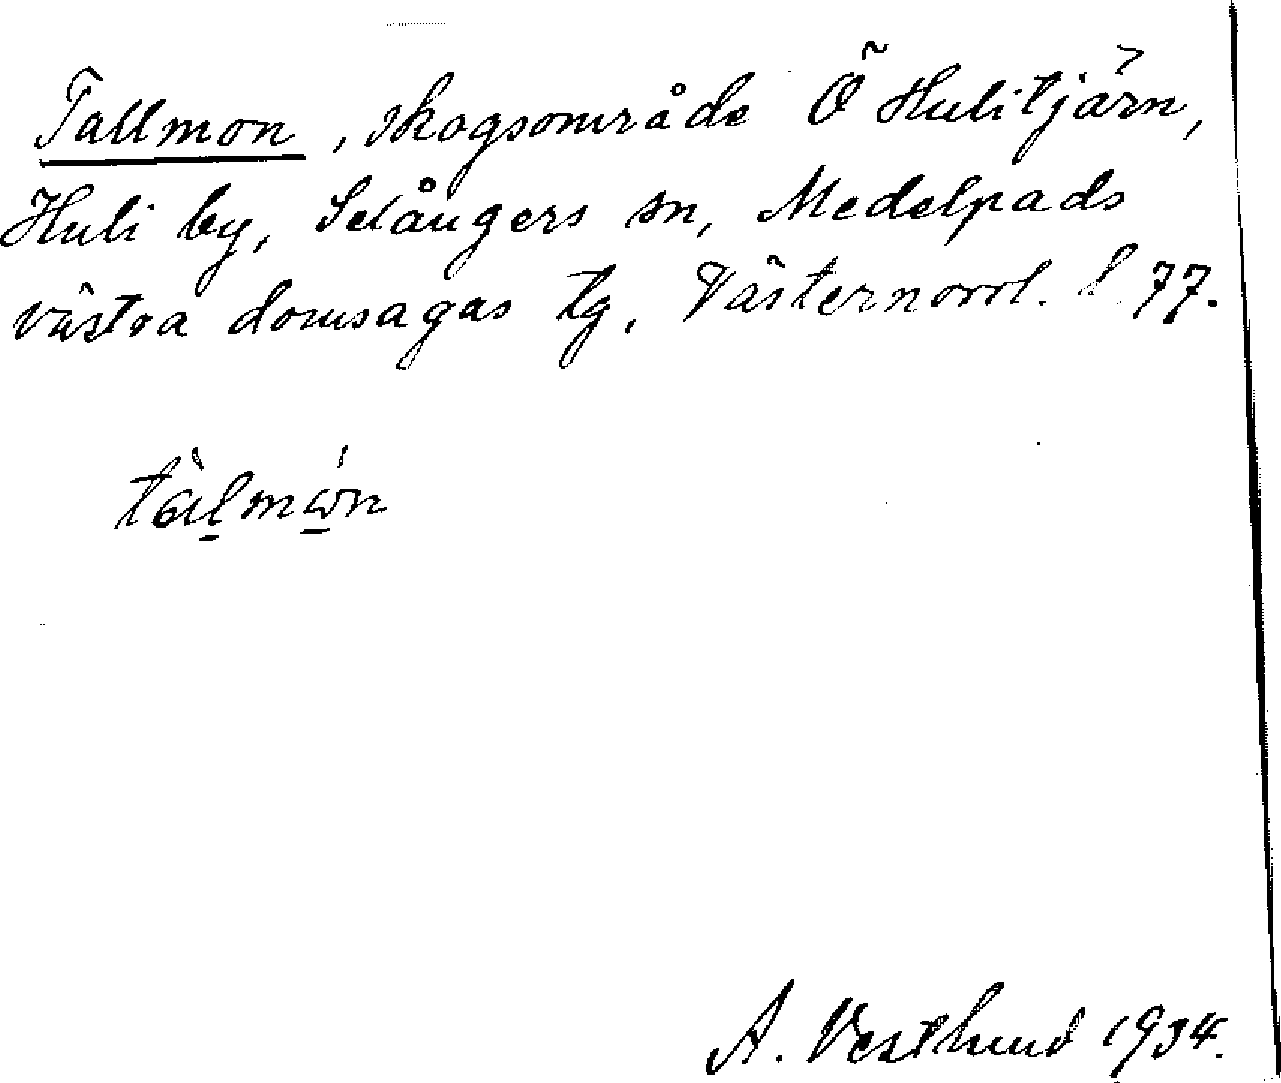 Tallmon, skogsområde Ö Hulitjärn,
Huli by, Selångers sn, Medelpads
västra domsagas tg, Västernorrl. l 77.
tàlmón
A. Vestlund 1934.